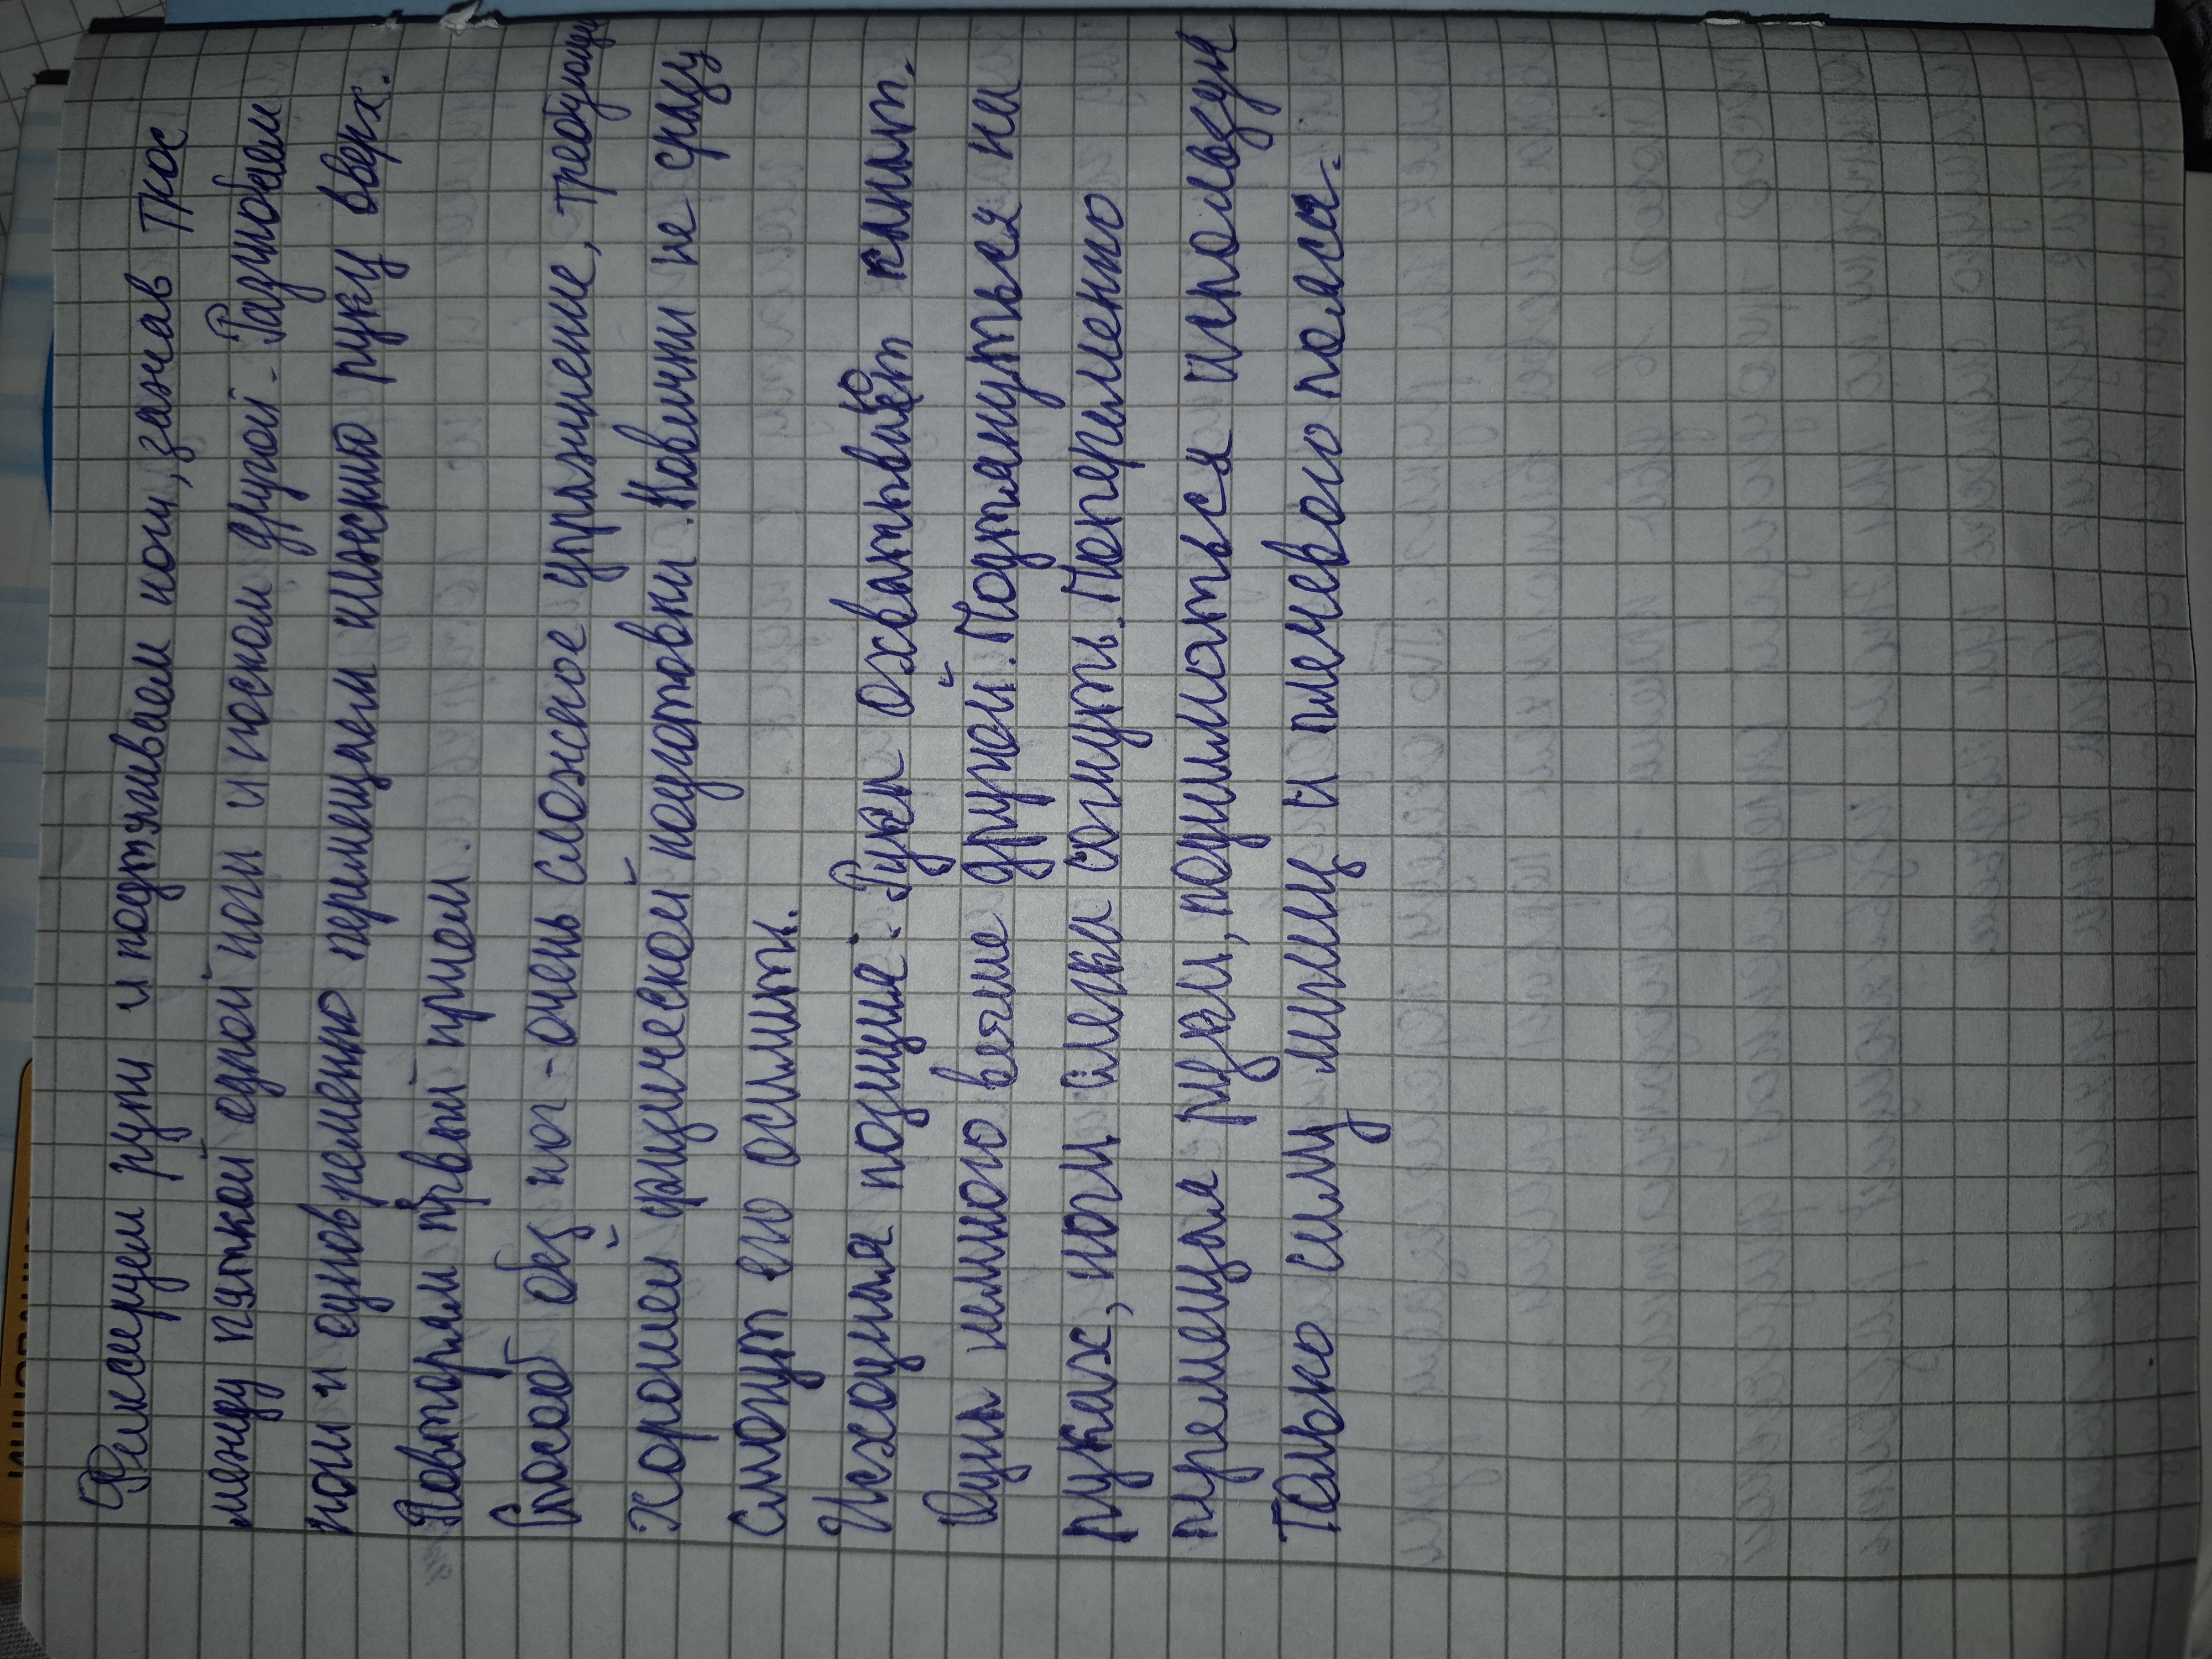 Фиксеруем руки и подтягиваем ноги, зажав трос
между пяткой одной ноги и носком другой. Разгибаем
ноги и одновременно перемещаем плескио руку вверх.
Повторям првый прием.
Способ без ног - очень сложное упражнение, требующе
Хорошей физической подготовки. Новички не сразу
Смогут его осилить.
Исходная позиция: Руки охватывают канат.
Одна немного выше другой. Подтянуться на
руках, ноги слегка согнуть. Попеременно
перемещая руки, подниматься используя
Только силу мышц и плечевого пояса.